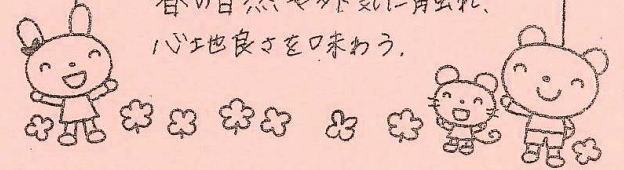 春の自然や外気に触れ、
心地良さを味わう.